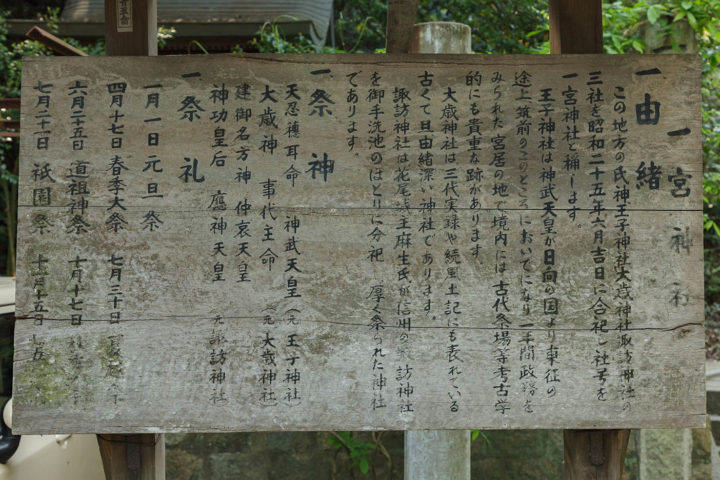 一宮神社
一由緒
この地方の氏神王子神社大歳神社諏訪神社の
三社を昭和二十五年六月吉日に合祀し社号を
一宮神社と稱します。
王子神社は神武天皇が日向の国より東征の
途上筑前のこのところにおいでになり一年間政務を
みられた宮居の地で境内には古代祭場等考古学
的にも貴重な跡があります。
大歳神社は三代実録や続風土記にも表れている
古くて且由緒深い神社であります。
諏訪神社は花尾城主麻生氏が信州の諏訪神社
を御手洗池のほとりに分祀 厚く祭られた神社
であります。
一祭神
天忍穗耳命 神武天皇(元王子神社)
大歳神 事代主命 (元大歳神社)
建御名方神 仲哀天皇
神功皇后 應神天皇 元諏訪神社
一祭礼
一月一日 元旦祭
四月十七日 春季大祭 七月三十日
六月二十五日 道祖神祭 十月十七日
七月二十一日 祇園祭 十一月十五日 七五